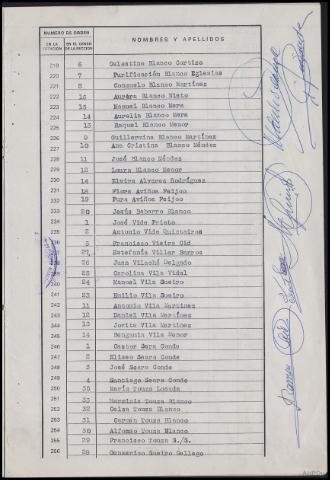 NUMERO DE ORDEN
EN LA VOTACION EN EL CENSO DE LA SECCION NOMBRES Y APELLIDOS
219 6 Celestino Blanco Cortizo
220 7 Purificación Blanco Eglesias
221 8 Consuelo Blanco Martínez
222 16 Aurora Blanco Nieto
223 15 Manuel Blanco Mera
224 14 Aurelia Blanco Mera
225 13 Raquel Blanco Menor
226 9 Guillermina Blanco Martínez
227 10 Ana Cristina Blanco Méndez
228 11 José Blanco Méndez
229 12 Laura Blanco Menor
230 Elvira Alvarez Rodríguez
231 18 Flora Aviñoa Feijoo
232 19 Pura Aviñoa Feijoo
233 20 Jesús Baborro Blanco
234 1 José Vide Prieto
235 2 Antonio Vide Quintairos
236 3 Francisco Vieira Cid
27 Estefanía Villar Barros
26 Juan Vilachá Delgado
25 Carolina Vila Vidal
240 24 Manuel Vila Sueiro
241 23 Emilio Vila Sueiro
242 11 Antonio Vila Martínez
243 12 Daniel Vila Martínez
244 13 Jovita Vila Martínez
245 14 Bengania Vila Menor
246 1 Castor Sara Conde
247 2 Eliseo Seara Conde
248 3 José Seara Conde
249 4 Santiago Seara Conde
250 35 María Touza Losada
251 33 Herminia Touza Blanco
252 32 Celsa Touza Blanco
253 31 Carmen Touza Blanco
254 30 Alfonso Touza Blanco
255 29 Francisco Touza S./S.
256 28 Consuelo Sueiro Gallego